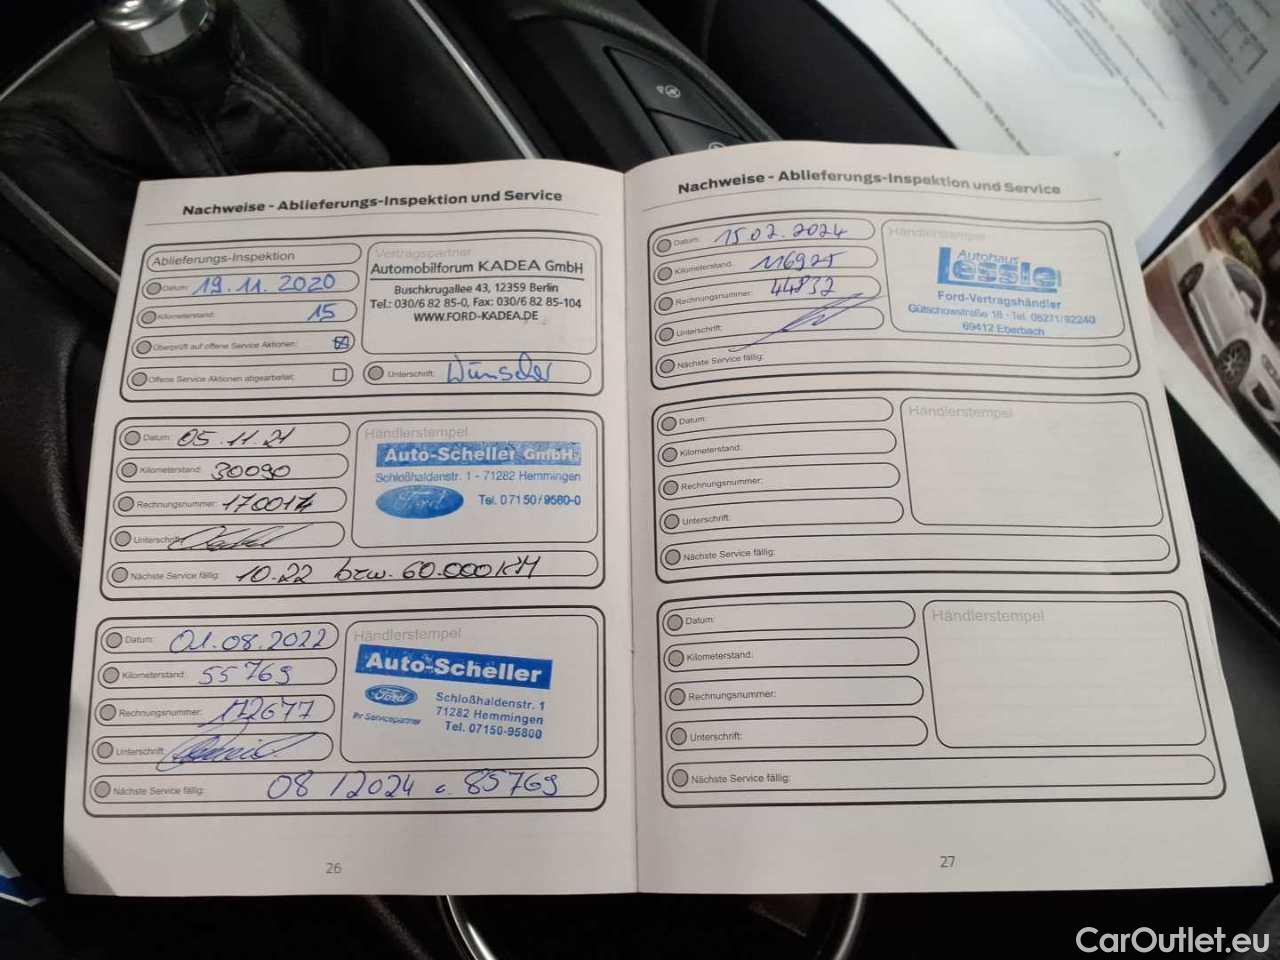 Nachweise - Ablieferungs-Inspektion und Service
Ablieferungs-Inspektion
Datum: 19.11.2020
Kilometerstand: 15
Überprüft auf offene Service Aktionen:
Offene Service Aktionen abgearbeitet:
Vertragspartner
Automobilforum KADEA GmbH
Buschkrugallee 43, 12359 Berlin
Tel.: 030/6 82 85-0, Fax: 030/6 82 85-104
WWW.FORD-KADEA.DE
Unterschrift: Wünscher
Datum: 05.11.21
Kilometerstand: 30090
Rechnungsnummer: 170014
Unterschrift:
Händlerstempel
Auto-Scheller GmbH
Schloßhaldenstr. 1 - 71282 Hemmingen
Ford
Tel. 07150/9580-0
Nächste Service fällig: 10.22 bzw. 60.000KM
Datum: 01.08.2022
Kilometerstand: 55769
Rechnungsnummer: 172677
Unterschrift:
Händlerstempel
Auto-Scheller
Ford
Ihr Servicepartner
Schloßhaldenstr. 1
71282 Hemmingen
Tel. 07150-95800
Nächste Service fällig: 08/2024 o. 85769
26
Nachweise - Ablieferungs-Inspektion und Service
Datum: 15.02.2024
Kilometerstand: 116925
Rechnungsnummer: 44832
Unterschrift:
Händlerstempel
Autohaus
Lessle
Ford-Vertragshändler
Gütschowstraße 18 - Tel. 06271/92240
69412 Eberbach
Nächste Service fällig:
Datum:
Kilometerstand:
Rechnungsnummer:
Unterschrift:
Händlerstempel
Nächste Service fällig:
Datum:
Kilometerstand:
Rechnungsnummer:
Unterschrift:
Händlerstempel
Nächste Service fällig:
27
CarOutlet.eu